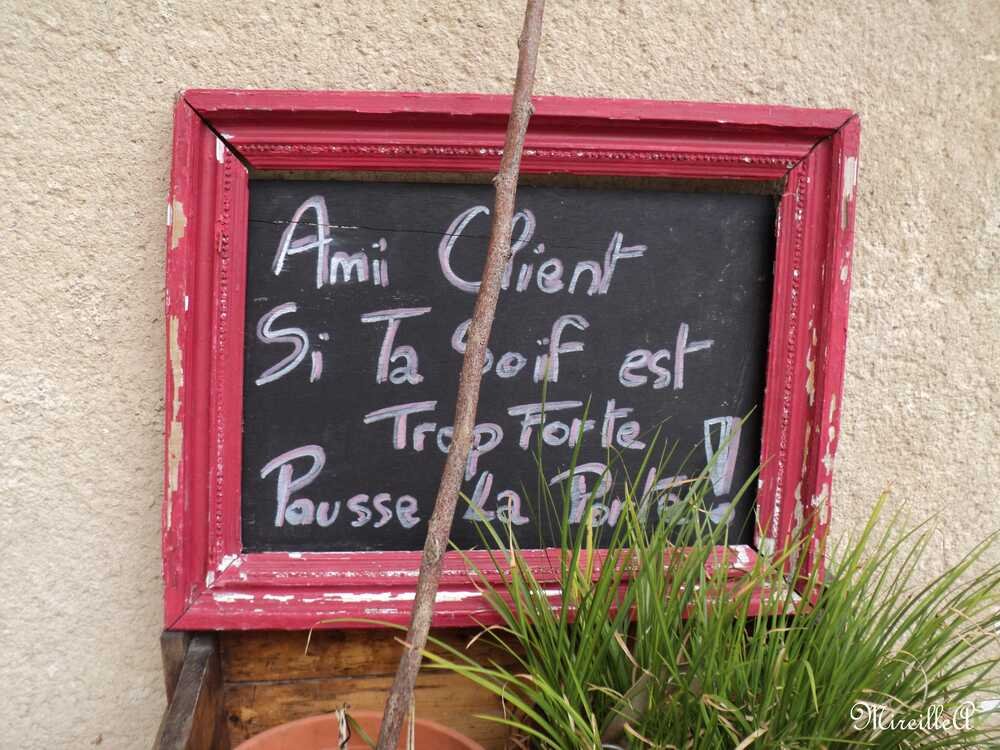 Ami Client
Si Ta Soif est
Trop Forte
Pousse La Porte !
MireilleA